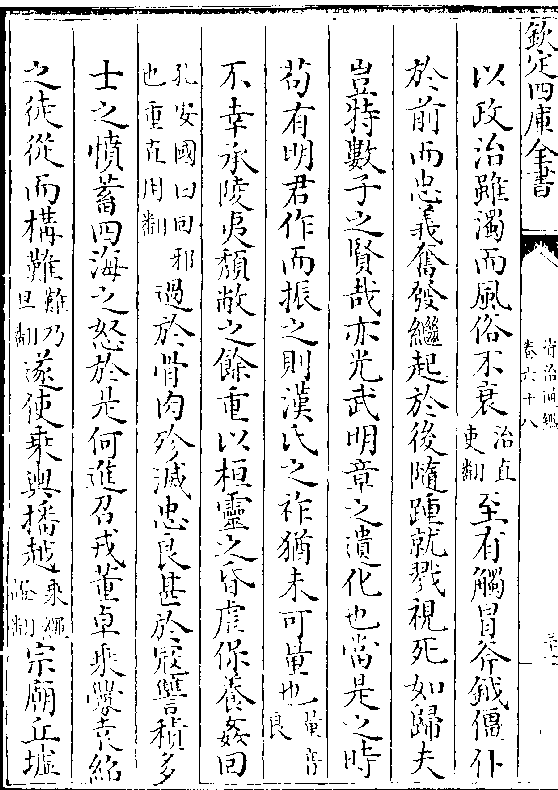 欽定四庫全書
資治通鑑
卷六十八
以政治雖濁而風俗不衰治直吏翻至有觸冒斧鉞僵仆
於前而忠義奮發繼起於後隨踵就戮視死如歸夫
豈特數子之賢哉亦光武明章之遺化也當是之時
苟有明君作而振之則漢氏之祚猶未可量也量音良
不幸承陵夷頽敝之餘重以桓靈之昏虐保養姦回
孔安國曰回邪也重直用翻過於骨肉殄滅忠良甚於寇讐積多
士之憤蓄四海之怒於是何進召戎董卓乗釁袁紹
之徒從而構難難乃旦翻遂使乗輿播越乘繩證翻宗廟丘墟